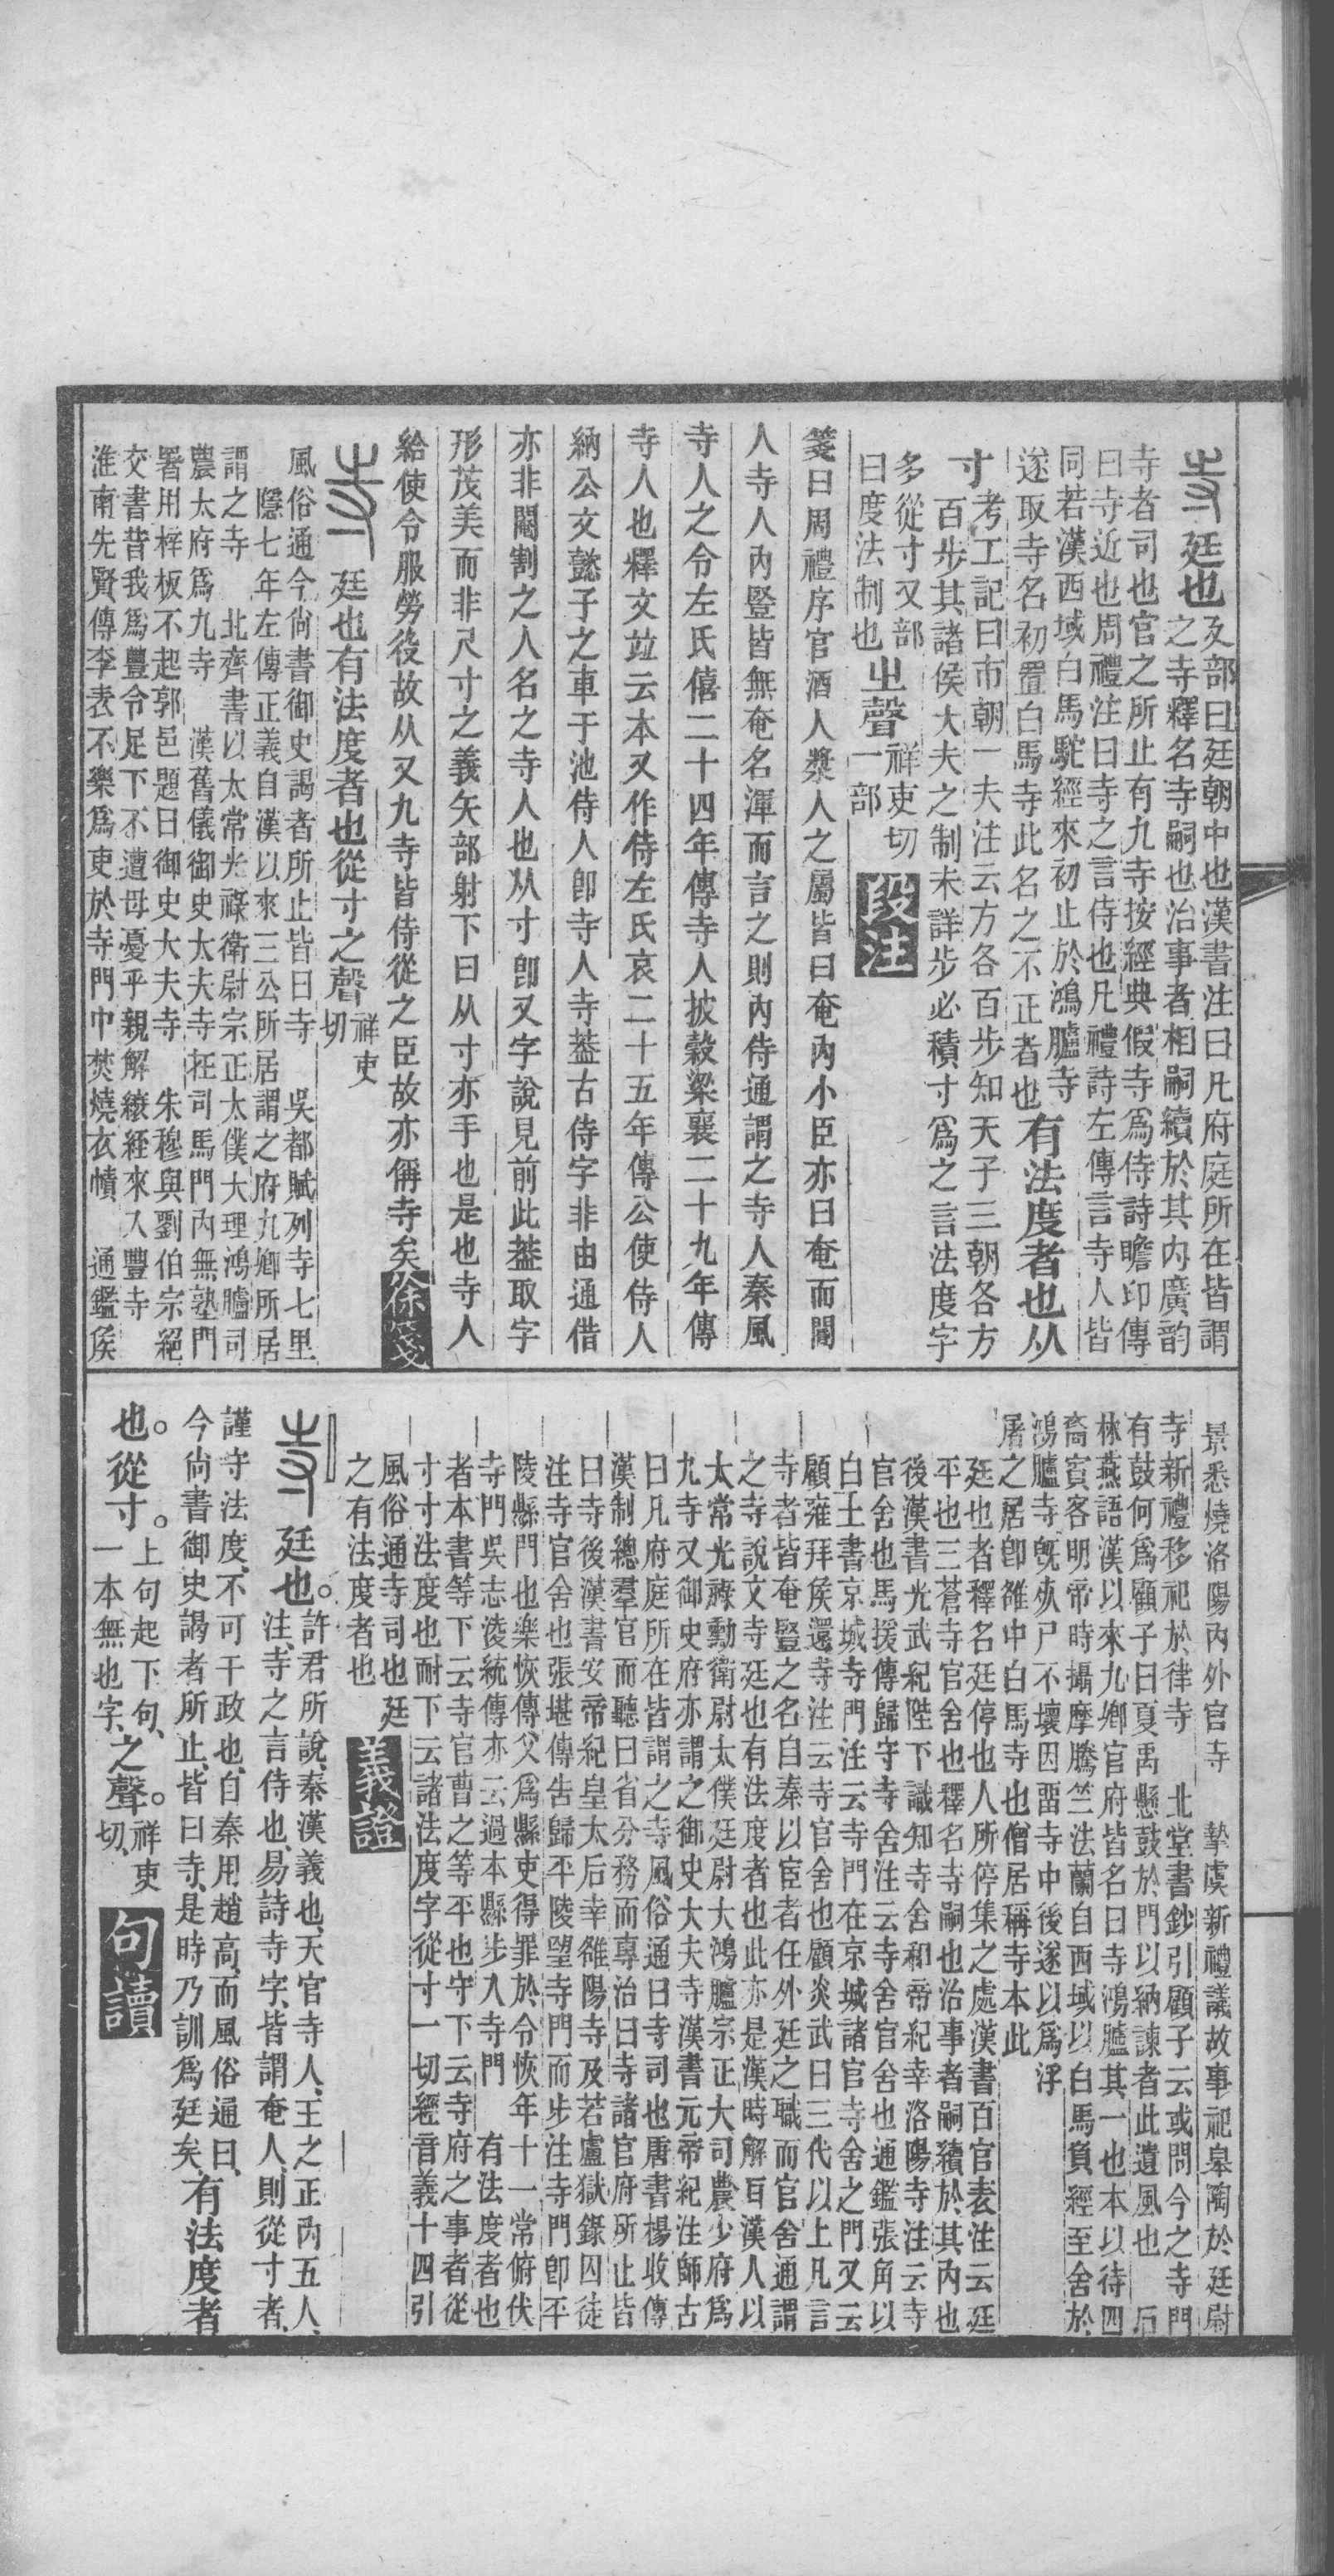 廷也廴部曰廷朝中也漢書注曰凡府庭所在皆謂
之寺釋名寺嗣也治事者相嗣續於其內廣韵
寺者司也官之所止有九寺按經典假寺爲侍詩瞻卬傳
曰寺近也周禮注曰寺之言侍也凡禮詩左傳言寺人皆
同若漢西域白馬駝經來初止於鴻臚寺
遂取寺名初置白馬寺此名之不正者也有法度者也从
寸考工記曰市朝一夫注云方各百步知天子三朝各方
百步其諸侯大夫之制未詳步必積寸爲之言法度字
多從寸又部
曰度法制也㞢聲祥吏切
一部段注
箋曰周禮序官酒人漿人之屬皆曰奄內小臣亦曰奄而閽
人寺人內豎皆無奄名渾而言之則內侍通謂之寺人秦風
寺人之令左氏僖二十四年傳寺人披穀梁襄二十九年傳
寺人也釋文竝云本又作侍左氏哀二十五年傳公使侍人
納公文懿子之車于池侍人卽寺人寺葢古侍字非由通借
亦非閹割之人名之寺人也从寸卽又字說見前此葢取字
形茂美而非尺寸之義矢部射下曰从寸亦手也是也寺人
給使令服勞役故从又九寺皆侍從之臣故亦偁寺矣徐箋
廷也有法度者也從寸之聲祥吏
切
風俗通今尙書御史謁者所止皆曰寺 吳都賦列寺七里
隱七年左傳正義自漢以來三公所居謂之府九卿所居
謂之寺 北齊書以太常光祿衛尉宗正太僕大理鴻臚司
農太府爲九寺 漢舊儀御史大夫寺在司馬門內無塾門
署用梓板不起郭邑題曰御史大夫寺 朱穆與劉伯宗絕
交書昔我爲豐令足下不遭母憂乎親解縗絰來入豐寺
淮南先賢傳李表不樂爲吏於寺門中焚燒衣幘 通鑑侯
景悉燒洛陽內外官寺 摯虞新禮議故事祀皋陶於廷尉
寺新禮移祀於律寺 北堂書鈔引顧子云或問今之寺門
有鼓何爲顧子曰夏禹懸鼓於門以納諫者此遺風也 石
林燕語漢以來九卿官府皆名曰寺鴻臚其一也本以待四
裔賓客明帝時攝摩騰竺法蘭自西域以白馬負經至舍於
鴻臚寺旣𣦸尸不壞因畱寺中後遂以爲浮
屠之居卽雒中白馬寺也僧居稱寺本此
廷也者釋名廷停也人所停集之處漢書百官表注云廷
平也三蒼寺官舍也釋名寺嗣也治事者嗣續於其內也
後漢書光武紀陛下識知寺舍和帝紀幸洛陽寺注云寺
官舍也馬援傳歸守寺舍注云寺舍官舍也通鑑張角以
白土書京城寺門注云寺門在京城諸官寺舍之門又云
顧雍拜侯還寺注云寺官舍也顧炎武曰三代以上凡言
寺者皆奄豎之名自秦以宦者任外廷之職而官舍通謂
之寺說文寺廷也有法度者也此亦是漢時解目漢人以
太常光祿勳衛尉太僕廷尉大鴻臚宗正大司農少府爲
九寺又御史府亦謂之御史大夫寺漢書元帝紀注師古
曰凡府庭所在皆謂之寺風俗通曰寺司也唐書楊收傳
漢制總羣官而聽曰省分務而專治曰寺諸官府所止皆
曰寺後漢書安帝紀皇太后幸雒陽寺及若盧獄錄囚徒
注寺官舍也張堪傳告歸平陵望寺門而步注寺門卽平
陵縣門也樂恢傳父爲縣吏得罪於令恢年十一常俯伏
寺門吳志淩統傳亦云過本縣步入寺門 有法度者也
者本書等下云寺官曹之等平也守下云寺府之事者從
寸寸法度也耐下云諸法度字從寸一切經音義十四引
風俗通寺司也廷
之有法度者也義證
廷也。許君所說、秦漢義也、天官寺人、王之正內五人、
注、寺之言侍也、易詩寺字、皆謂奄人、則從寸者、
謹守法度、不可干政也、自秦用趙高、而風俗通曰、
今尙書御史謁者所止、皆曰寺、是時乃訓爲廷矣、有法度者
也。從寸。上句起下句、
一本無也字、之聲。祥吏
切、句讀